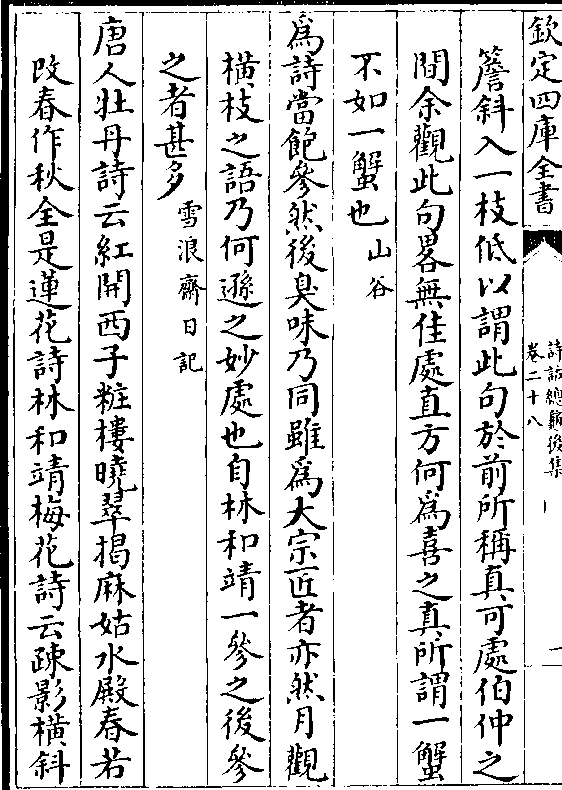 欽定四庫全書
詩話總龜後集
卷二十八
一
簷斜入一枝低以謂此句於前所稱真可處伯仲之
間余觀此句畧無佳處直方何爲喜之真所謂一蟹
不如一蟹也山谷
爲詩當飽參然後臭味乃同雖爲大宗匠者亦然月觀
横枝之語乃何遜之妙處也自林和靖一參之後參
之者甚多雪浪齋日記
唐人牡丹詩云紅開西子粧樓曉翠揭麻姑水殿春若
改春作秋全是蓮花詩林和靖梅花詩云疎影横斜